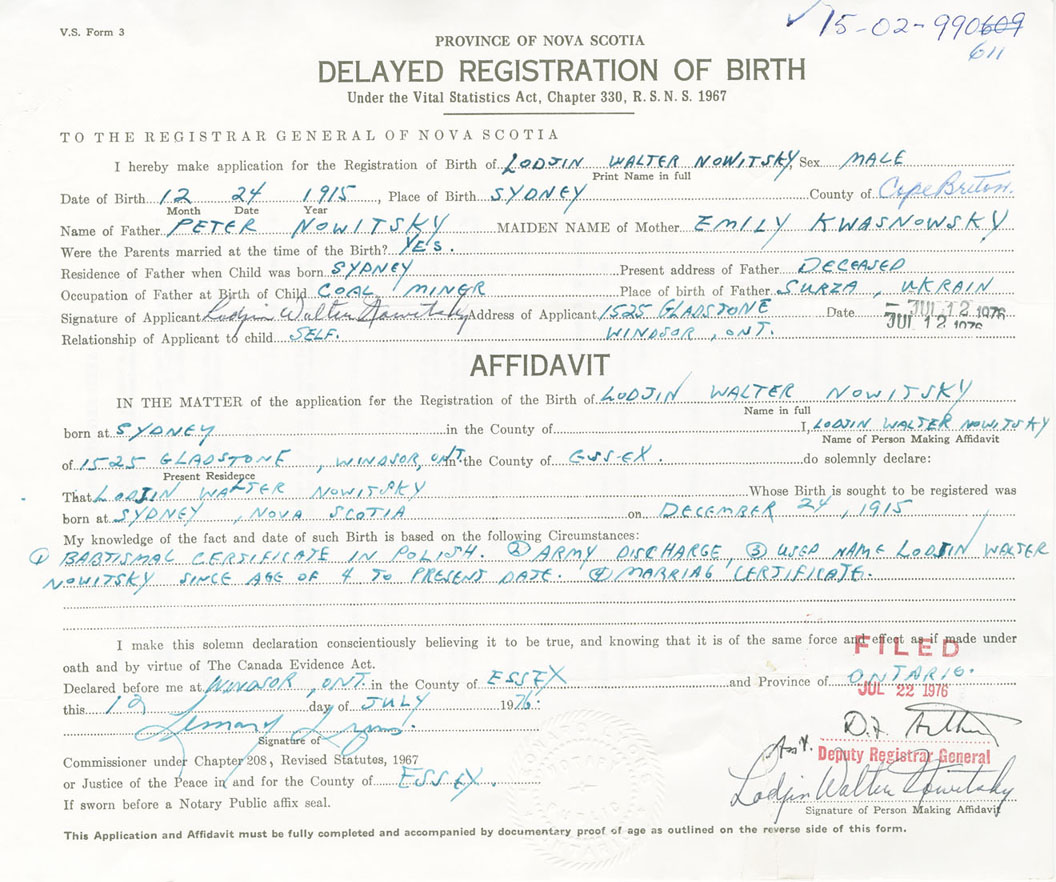 V.S. Form 3
15-02-990609
611
PROVINCE OF NOVA SCOTIA
DELAYED REGISTRATION OF BIRTH
Under the Vital Statistics Act, Chapter 330, R. S. N. S. 1967
TO THE REGISTRAR GENERAL OF NOVA SCOTIA
I hereby make application for the Registration of Birth of LODJIN WALTER NOWITSKY, Sex MALE
Print Name in full
Date of Birth 12 24 1915, Place of Birth SYDNEY County of Cape Breton.
Month Date Year
Name of Father PETER NOWITSKY MAIDEN NAME of Mother EMILY KWASNOWSKY
Were the Parents married at the time of the Birth? YES.
Residence of Father when Child was born SYDNEY Present address of Father DECEASED
Occupation of Father at Birth of Child COAL MINER Place of birth of Father SURZA, UKRAIN
Signature of Applicant Lodjin Walter Nowitsky Address of Applicant 1525 GLADSTONE Date JUL 12 1976
JUL 12 1976
Relationship of Applicant to child SELF. WINDSOR, ONT.
AFFIDAVIT
IN THE MATTER of the application fer the Registration of the Birth of LODJIN WALTER NOWITSKY
Name in full
born at SYDNEY in the County of I, LODJIN WALTER NOWITSKY
Name of Person Making Affidavit
of 1525 GLADSTONE, WINDSOR, ONT. in the County of ESSEX. do solemnly declare:
Present Residence
That LODJIN WALTER NOWITSKY Whose Birth is sought to be registered was
born at SYDNEY, NOVA SCOTIA on DECEMBER 24, 1915
My knowledge of the fact and date of such Birth is based on the following Circumstances:
① BABTISMAL CERTIFICATE IN POLISH. ② ARMY DISCHARGE, ③ USED NAME LODJIN WALTER
NOWITSKY SINCE AGE OF 4 TO PRESENT DATE. ④ MARRIAG CERTIFICATE.
I make this solemn declaration conscientiously believing it to be true, and knowing that it is of the same force and effect as if made under
oath and by virtue of The Canada Evidence Act.
FILED
Declared before me at WINDSOR, ONT. in the County of ESSEX and Province of ONTARIO.
JUL 22 1976
this 12 day of JULY 1976.
Signature of
Ass't. Deputy Registrar General
Commissioner under Chapter 208, Revised Statutes, 1967
or Justice of the Peace in and for the County of ESSEX.
Lodjin Walter Nowitsky
Signature of Person Making Affidavit
If sworn before a Notary Public affix seal.
This Application and Affidavit must be fully completed and accompanied by documentary proof of age as outlined on the reverse side of this form.